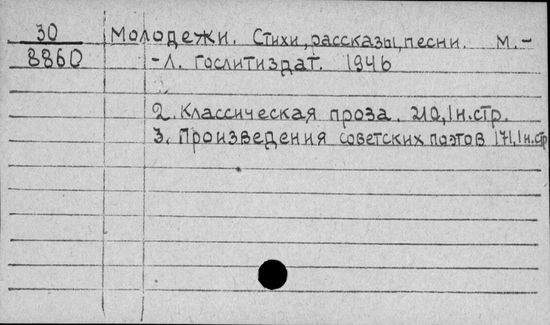 30 Молодежи. Стихи, рассказы, песни. М.-
8860 -Л. Гослитиздат. 1946
2. Классическая проза. 210, 1 н. стр.
3. Произведения советских поэтов 171, 1 н. стр